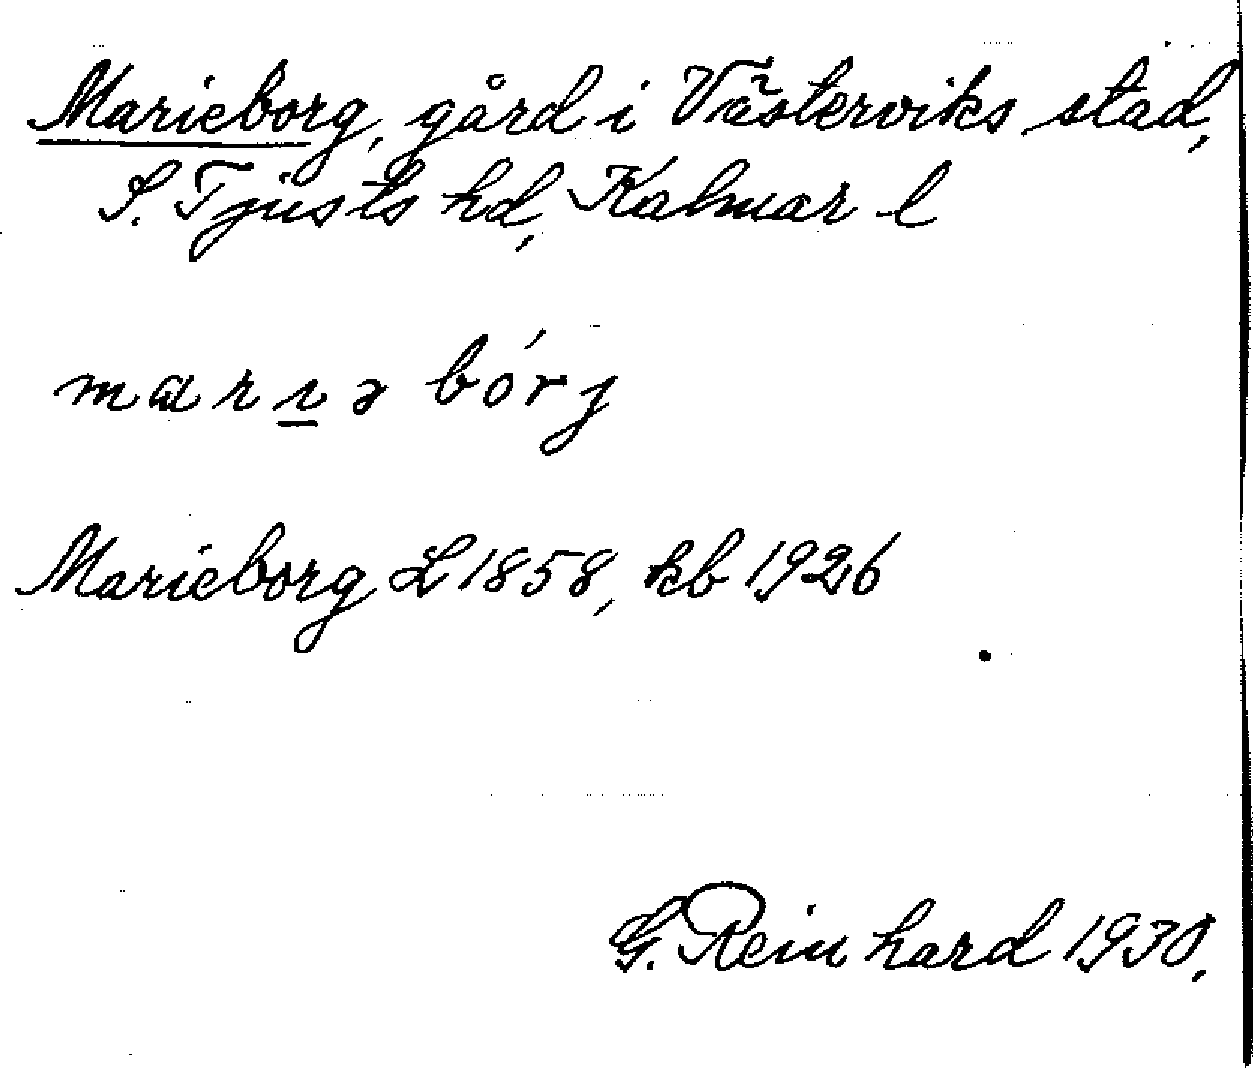 Marieborg, gård i Västerviks stad,
S. Tjusts hd, Kalmar l
marɪ̱ə bórj
Marieborg L 1858, kb 1926
G. Reinhard 1930.